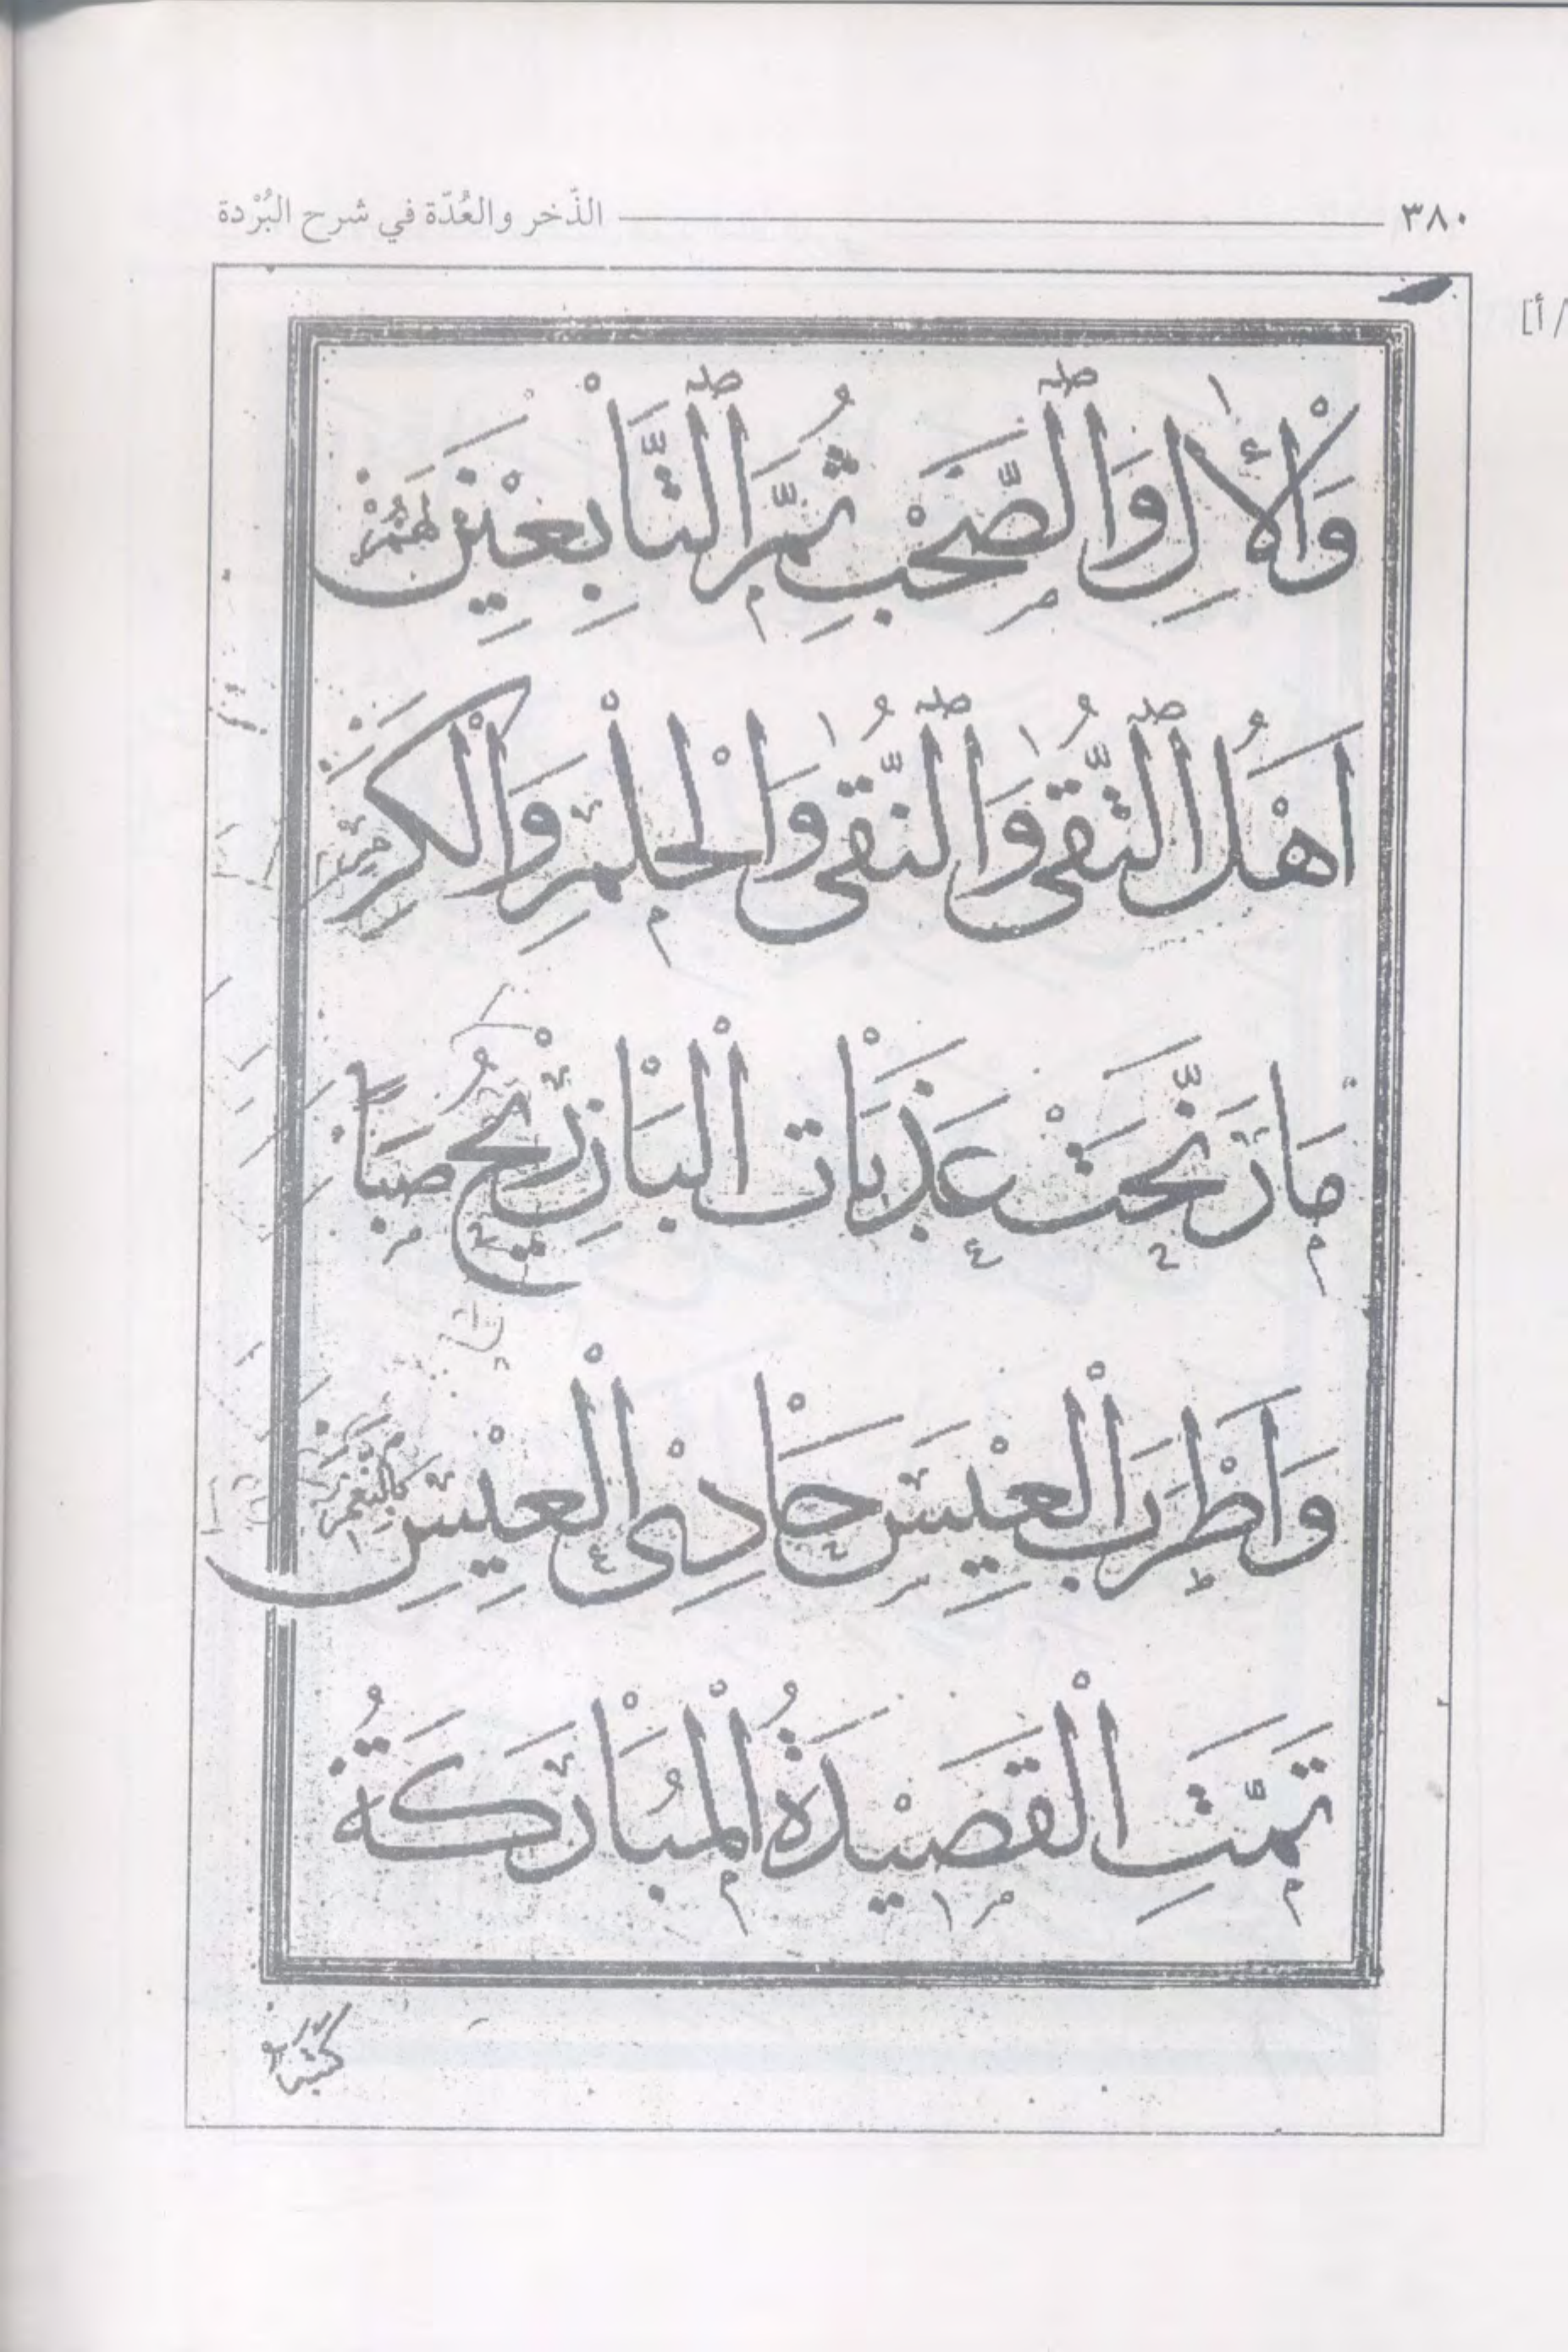 ٣٨٠ الذّخر والعُدّة في شرح البُرْدة
/أ]
وَالْأٰلِ وَالصَّحْبِ ثُمَّ التَّابِعِيْنَ لَهُمْ
اَهْلُ التُّقٰى وَالنُّقٰى وَالْحِلْمِ وَالْكَرَمِ
مَا رَنَّحَتْ عَذَبَاتِ الْبَانِ رِيْحُ صَبًا
وَاَطْرَبَ الْعِيْسَ حَادِى الْعِيْسِ بِالنَّغَمِ
تَمَّتِ الْقَصِيْدَةُ الْمُبَارَكَةُ